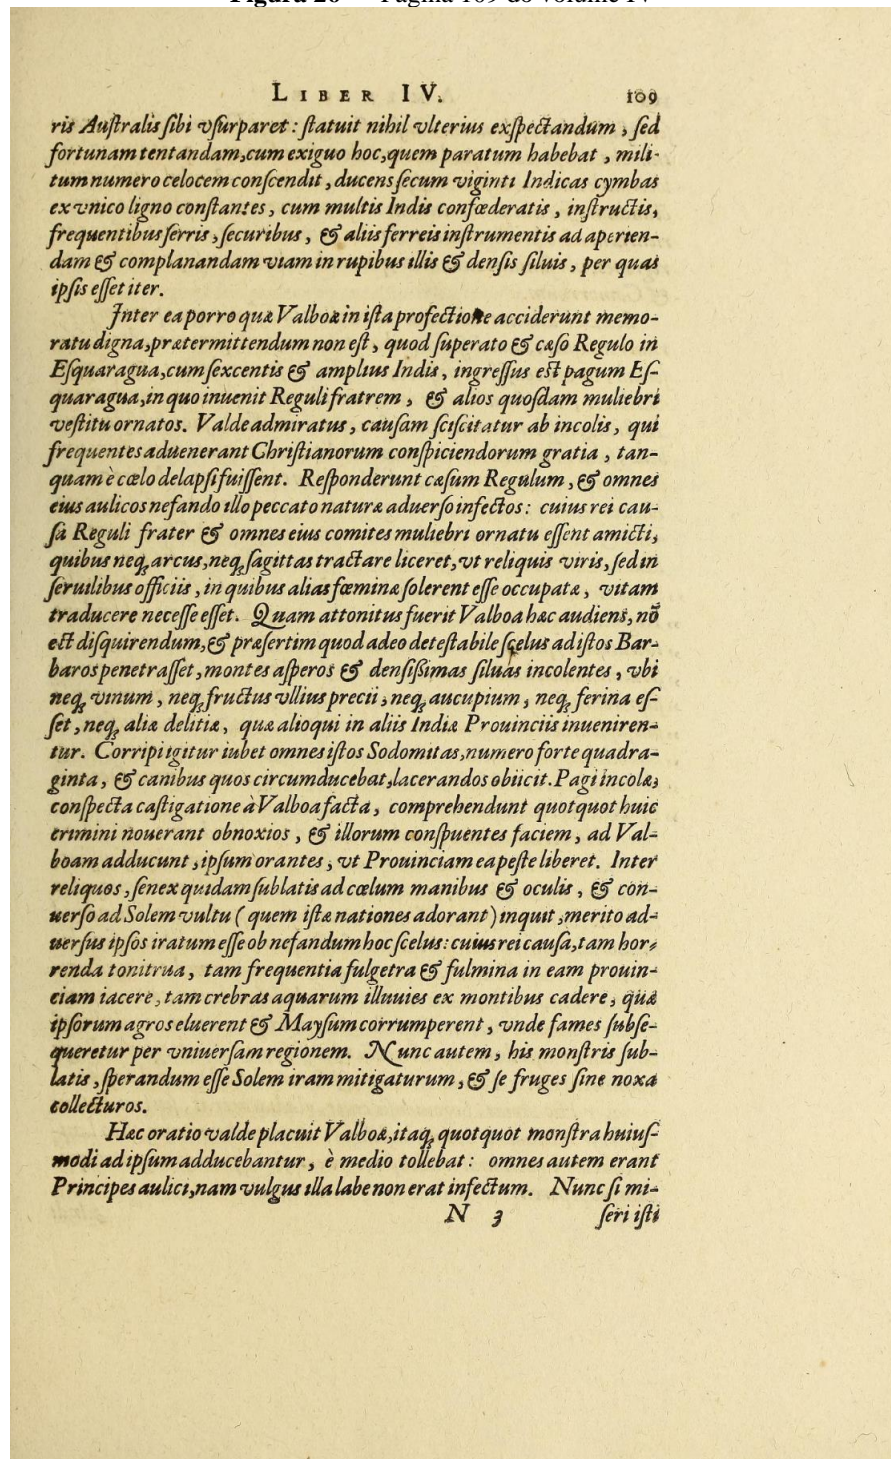 Figura 20 Página 109 do volume IV
LIBER IV. 109
ris Auſtralis ſibi vſurparet: ſtatuit nihil vlterius exſpectandum, ſed
fortunam tentandam, cum exiguo hoc, quem paratum habebat, mili-
tum numero celocem conſcendit, ducens ſecum viginti Indicas cymbas
ex vnico ligno conſtantes, cum multis Indis confœderatis, inſtructis,
frequentibus ferris, ſecuribus, & aliis ferreis inſtrumentis ad aperien-
dam & complanandam viam in rupibus illis & denſis ſiluis, per quas
ipſis eſſet iter.
Inter ea porro quæ Valboæ in iſta profectione acciderunt memo-
ratu digna, prætermittendum non eſt, quod ſuperato & cæſo Regulo in
Eſquaragua, cum ſexcentis & amplius Indis, ingreſſus eſt pagum Eſ-
quaragua, in quo inuenit Reguli fratrem, & alios quoſdam muliebri
veſtitu ornatos. Valde admiratus, cauſam ſciſcitatur ab incolis, qui
frequentes aduenerant Chriſtianorum conſpiciendorum gratia, tan-
quam è cœlo delapſi fuiſſent. Reſponderunt cæſum Regulum, & omnes
eius aulicos nefando illo peccato naturæ aduerſo infectos: cuius rei cau-
ſa Reguli frater & omnes eius comites muliebri ornatu eſſent amicti,
quibus neq; arcus, neq; ſagittas tractare liceret, vt reliquis viris, ſed in
ſeruilibus officiis, in quibus alias fœminæ ſolerent eſſe occupatæ, vitam
traducere neceſſe eſſet. Quam attonitus fuerit Valboa hæc audiens, nõ
eſt diſquirendum, & præſertim quod adeo deteſtabile ſcelus ad iſtos Bar-
baros penetraſſet, montes aſperos & denſißimas ſiluas incolentes, vbi
neq; vinum, neq; fructus vllius precii, neq; aucupium, neq; ferina eſ-
ſet, neq; aliæ delitiæ, quæ alioqui in aliis Indiæ Prouinciis inueniren-
tur. Corripi igitur iubet omnes iſtos Sodomitas, numero forte quadra-
ginta, & canibus quos circumducebat, lacerandos obiicit. Pagi incolæ,
conſpecta caſtigatione à Valboa facta, comprehendunt quotquot huic
crimini nouerant obnoxios, & illorum conſpuentes faciem, ad Val-
boam adducunt, ipſum orantes, vt Prouinciam ea peſte liberet. Inter
reliquos, ſenex quidam ſublatis ad cœlum manibus & oculis, & con-
uerſo ad Solem vultu (quem iſtæ nationes adorant) inquit, merito ad-
uerſus ipſos iratum eſſe ob nefandum hoc ſcelus: cuius rei cauſa, tam hor-
renda tonitrua, tam frequentia fulgetra & fulmina in eam prouin-
ciam iacere, tam crebras aquarum illuuies ex montibus cadere, quæ
ipſorum agros eluerent & Mayſum corrumperent, vnde fames ſubſe-
queretur per vniuerſam regionem. Nunc autem, his monſtris ſub-
latis, ſperandum eſſe Solem iram mitigaturum, & ſe fruges ſine noxa
collecturos.
Hæc oratio valde placuit Valboæ, itaq; quotquot monſtra huiuſ-
modi ad ipſum adducebantur, è medio tollebat: omnes autem erant
Principes aulici, nam vulgus illa labe non erat infectum. Nunc ſi mi-
N 3 ſeri iſti